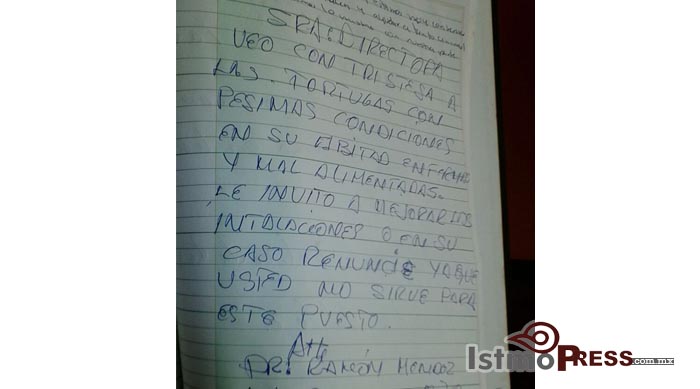 SRA: DIRECTORA
VEO CON TRISTESA A
LAS TORTUGAS CON
PESIMAS CONDICIONES
EN SU ABITAD ENFERMAS
Y MAL ALIMENTADAS.
LE INVITO A MEJORAR LAS
INTALACCIONES O EN SU
CASO RENUNCIE YA QUE
USTED NO SIRVE PARA
ESTE PUESTO.
Att
DR: RAMÓN MENDOZ
IstmoPRESS.com.mx